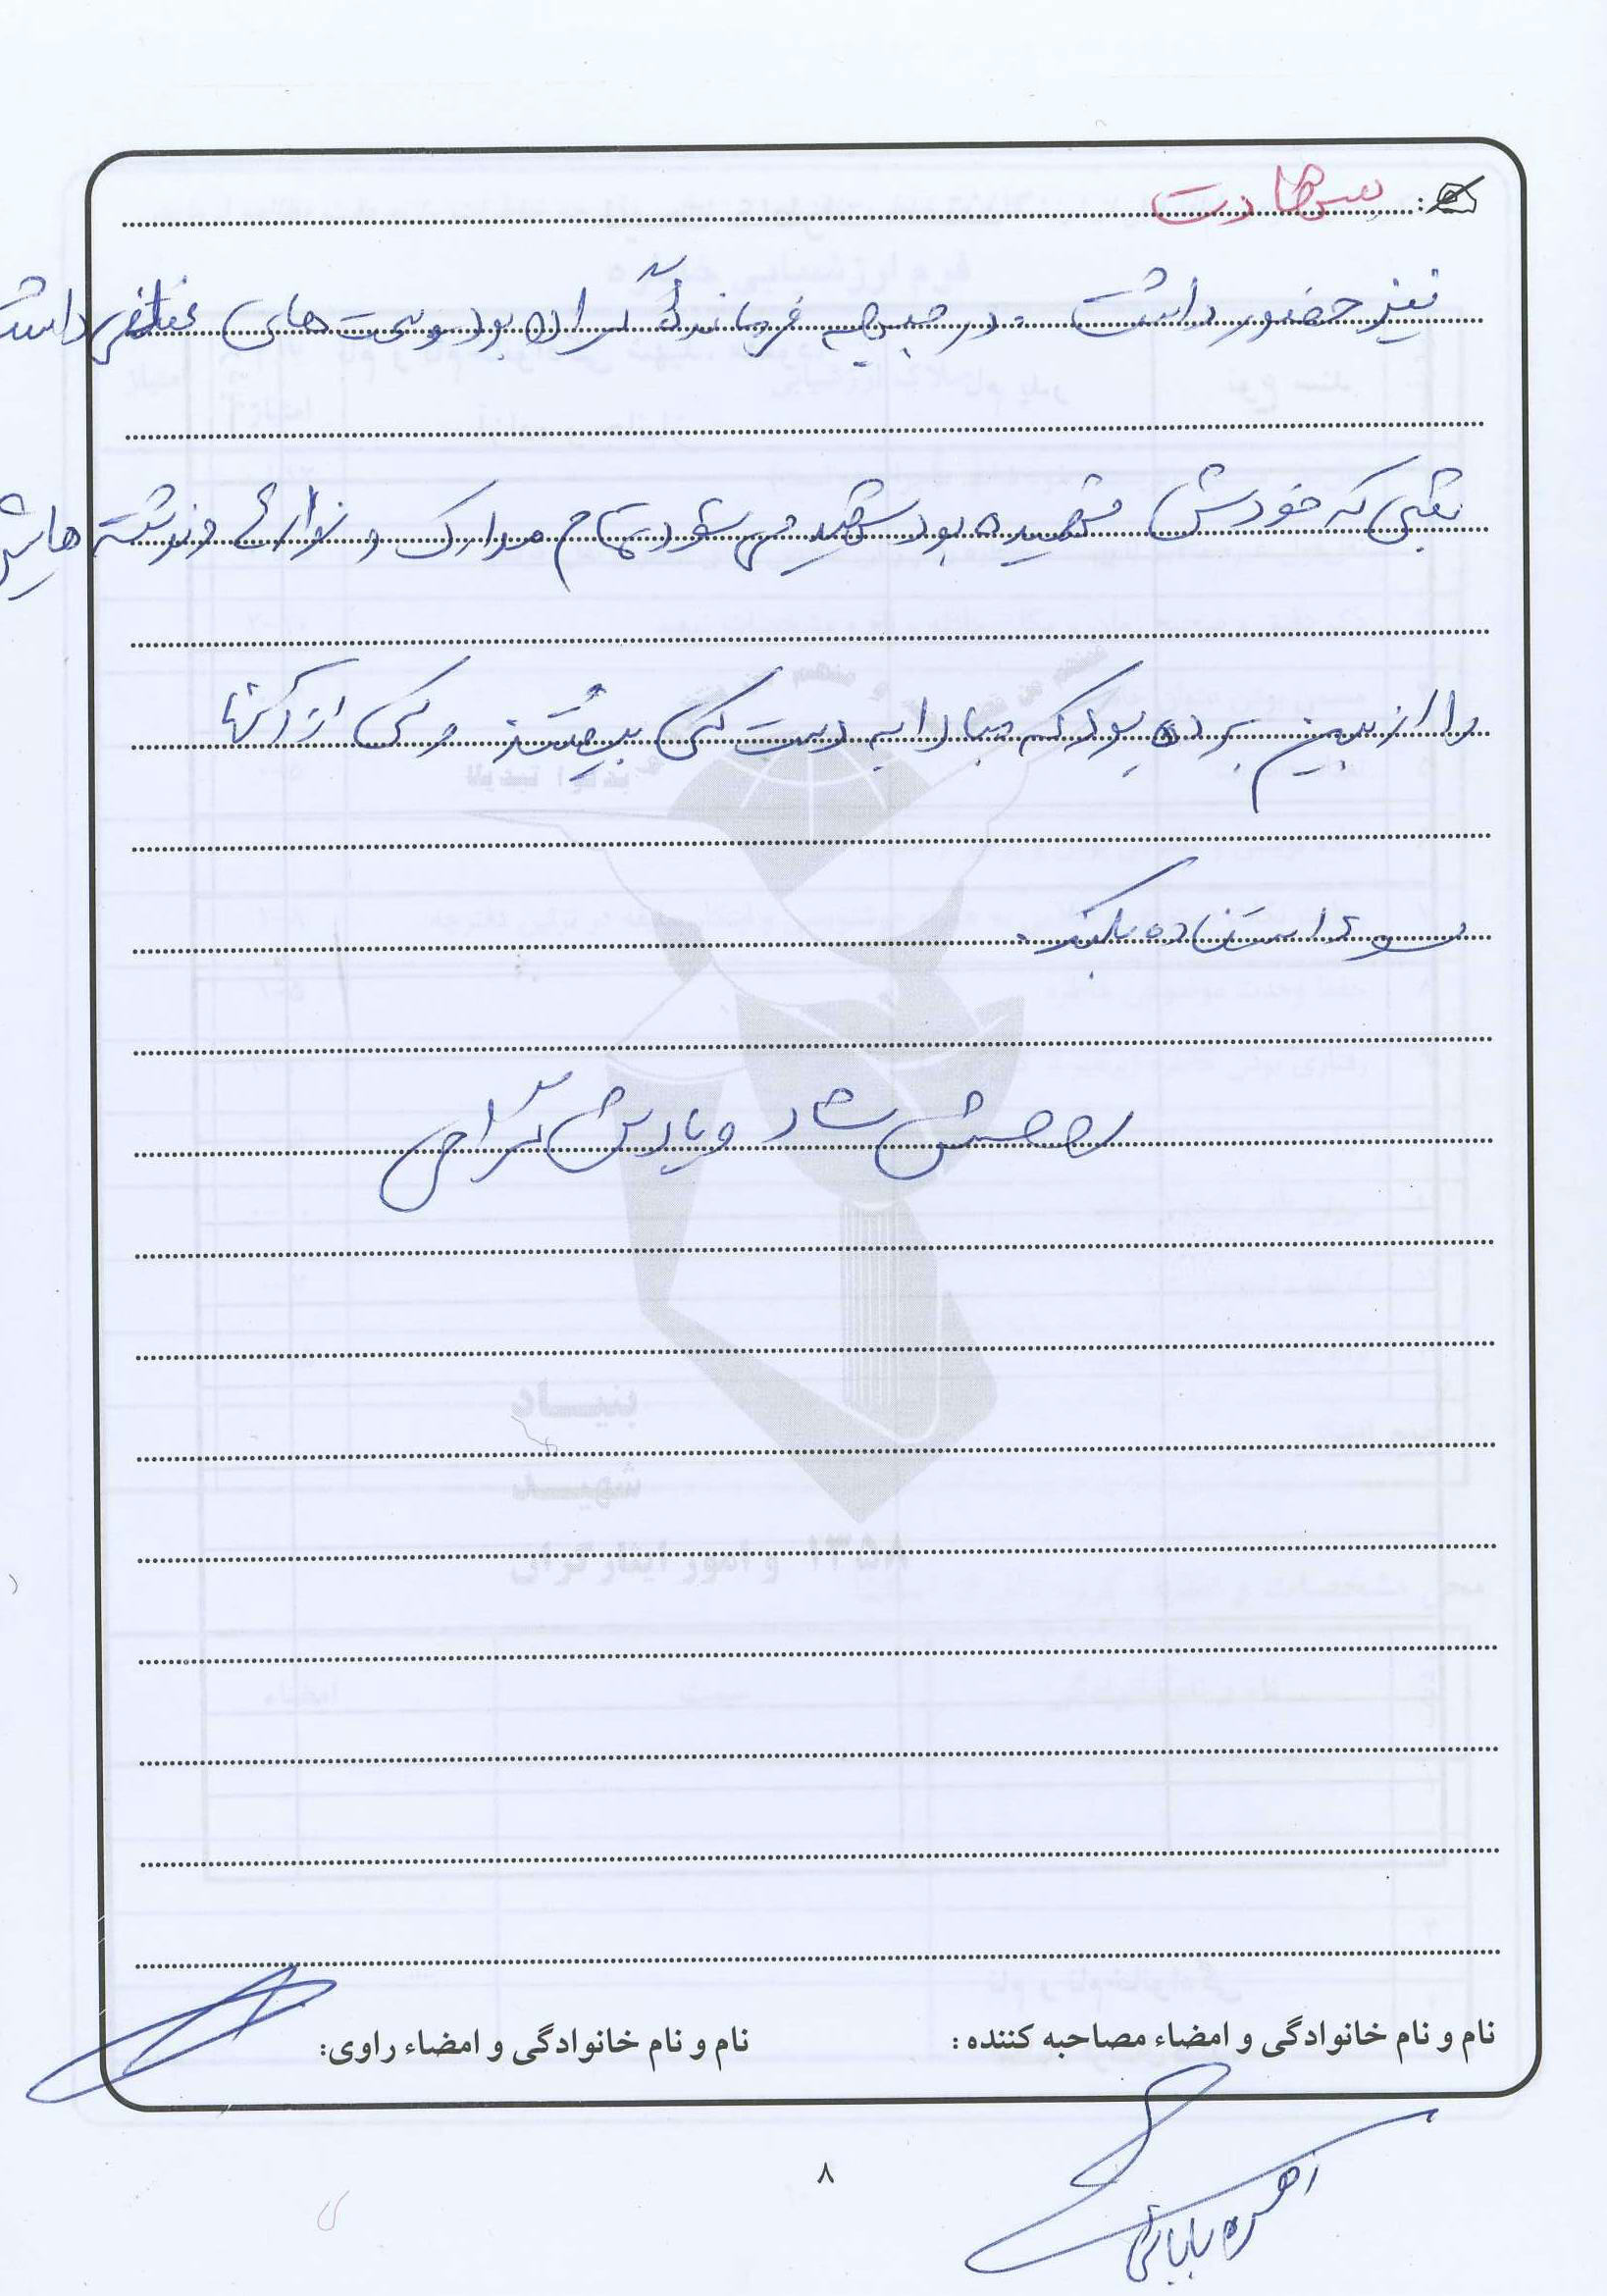 شهادت
نیز حضور داشت . در جبهه فرمانده گردان بود و سمت های مختلفی داشت
وقتی که خودش فهمیده بود شهید می شود تمام مدارک و نوارها و نوشته هایش
را از بین برده بود که مبادا به دست کسی بیفتند و کسی از آنها
سوء استفاده بکند .
روحش شاد و یادش گرامی
نام و نام خانوادگی و امضاء مصاحبه کننده :
نام و نام خانوادگی و امضاء راوی:
۸
بابائی